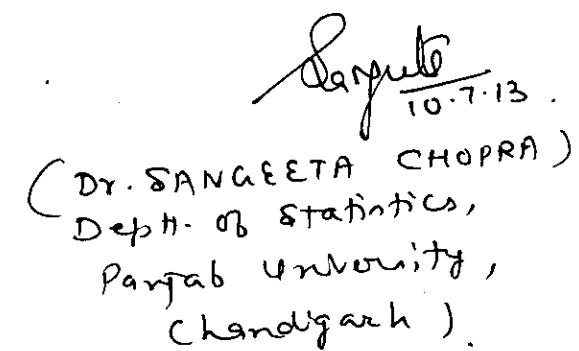 Sangeeta
10.7.13.
(Dr. SANGEETA CHOPRA)
Deptt. of Statistics,
Panjab University,
Chandigarh).